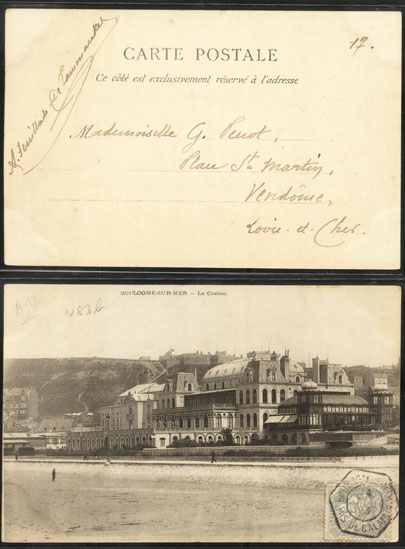 CARTE POSTALE
17.
Ce côté est exclusivement réservé à l'adresse
Mademoiselle G. Penot,
Place St Martin,
Vendôme,
Loir-et-Cher.
BOULOGNE-SUR-MER – Le Casino
A.V.
PAS DE CALAIS